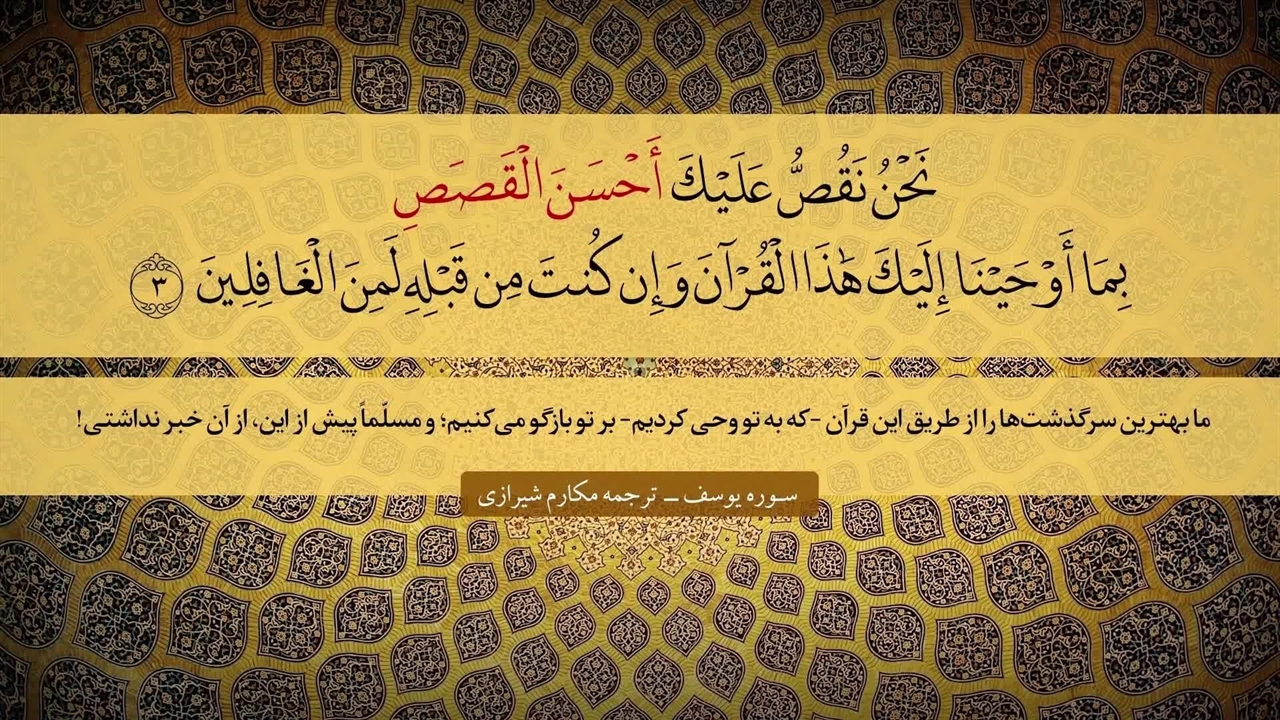 نَحْنُ نَقُصُّ عَلَيْكَ أَحْسَنَ الْقَصَصِ
بِمَا أَوْحَيْنَا إِلَيْكَ هَٰذَا الْقُرْآنَ وَإِن كُنتَ مِن قَبْلِهِ لَمِنَ الْغَافِلِينَ ﴿٣﴾
ما بهترین سرگذشت‌ها را از طریق این قرآن -که به تو وحی کردیم- بر تو بازگو می‌کنیم؛ و مسلّماً پیش از این، از آن خبر نداشتی!
سوره یوسف ــ ترجمه مکارم شیرازی